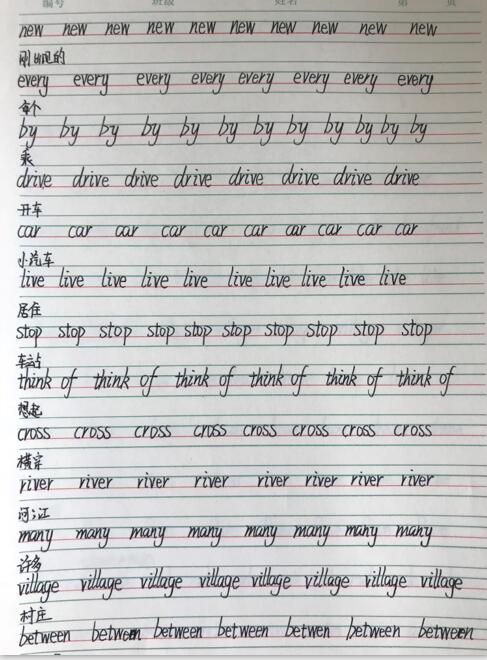 编号 班级 姓名 第 页
new new new new new new new new new
刚出现的
every every every every every every every every
每个
by by by by by by by by by by by by
乘
drive drive drive drive drive drive drive drive
开车
car car car car car car car car car car
小汽车
live live live live live live live live live live
居住
stop stop stop stop stop stop stop stop stop stop
车站
think of think of think of think of think of think of
想起
cross cross cross cross cross cross cross cross
横穿
river river river river river river river river
河;江
many many many many many many many many
许多
village village village village village village village village
村庄
between between between between between between between